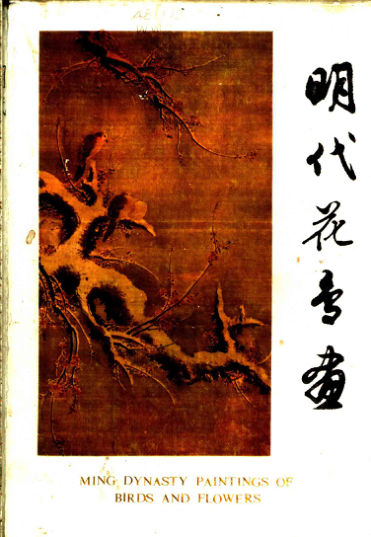 明代花鸟画
MING DYNASTY PAINTINGS OF
BIRDS AND FLOWERS